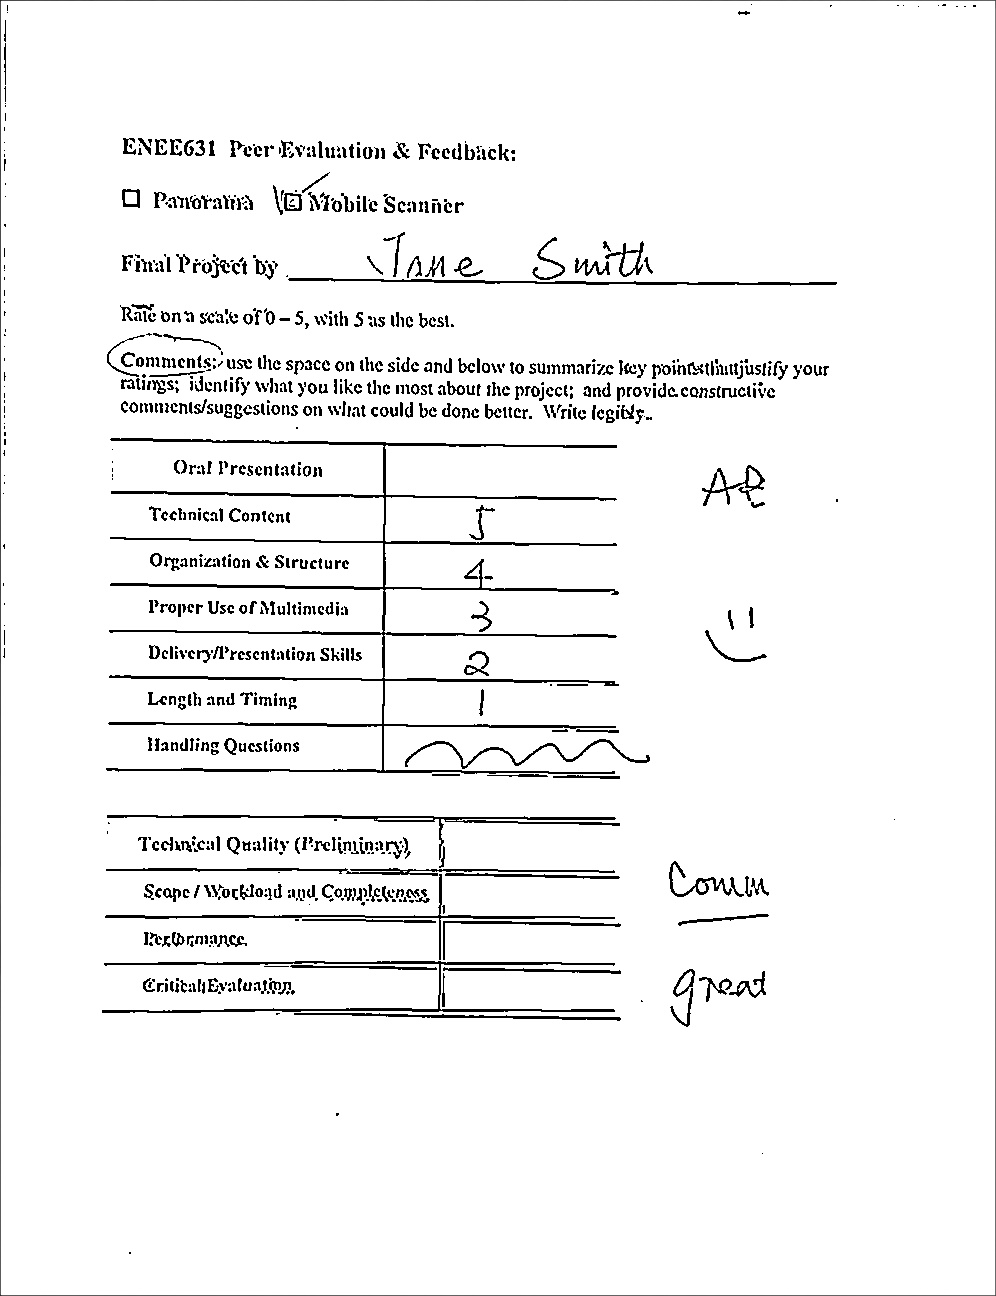 ENEE631 Peer Evaluation & Feedback:
☐ Panorama ☑ Mobile Scanner
Final Project by Jane Smith
Rate on a scale of 0 – 5, with 5 as the best.
Comments: use the space on the side and below to summarize key points that justify your
ratings; identify what you like the most about the project; and provide constructive
comments/suggestions on what could be done better. Write legibly.
Oral Presentation
Technical Content 5
Organization & Structure 4
Proper Use of Multimedia 3
Delivery/Presentation Skills 2
Length and Timing 1
Handling Questions
Technical Quality (Preliminary)
Scope / Workload and Completeness
Comm
Performance
Critical Evaluation
great